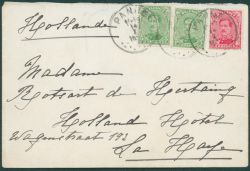 Hollande
PANNE
Madame
Rotsart de Hertaing
Holland Hôtel
Wagenstraat 193
La Haye